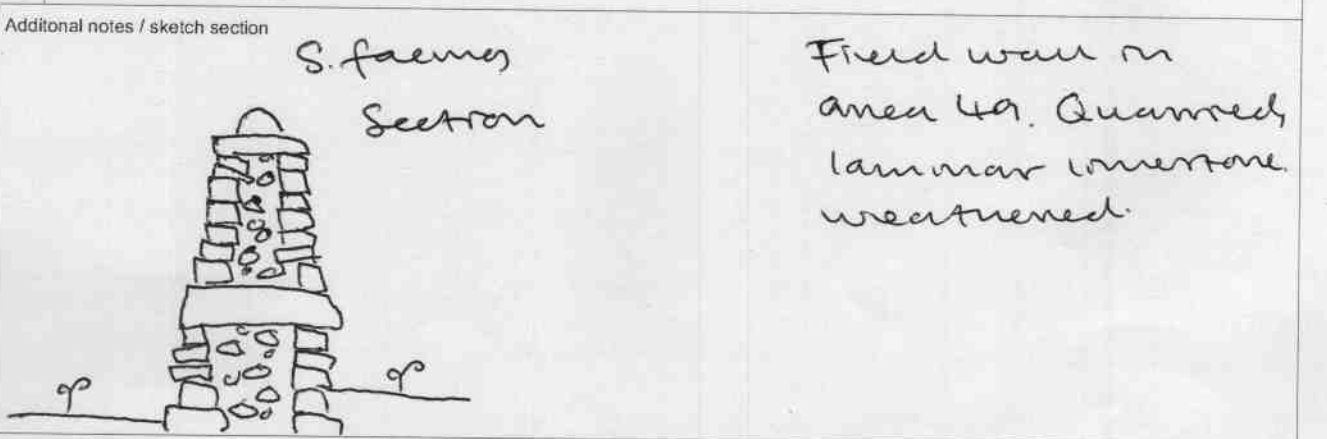 Additonal notes / sketch section
S. facing
Section
Field wall in
area 49. Quarried,
laminar limestone.
weathered.